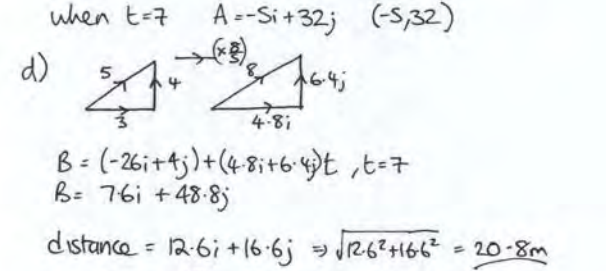 when t=7 A = -5i + 32j (-5,32)
d) 5 4 3 (×8/5) 8 6.4j 4.8i
B = (-26i+4j)+(4.8i+6.4j)t , t=7
B= 7.6i + 48.8j
distance = 12.6i + 16.6j ⇒ √12.6²+16.6² = 20.8m